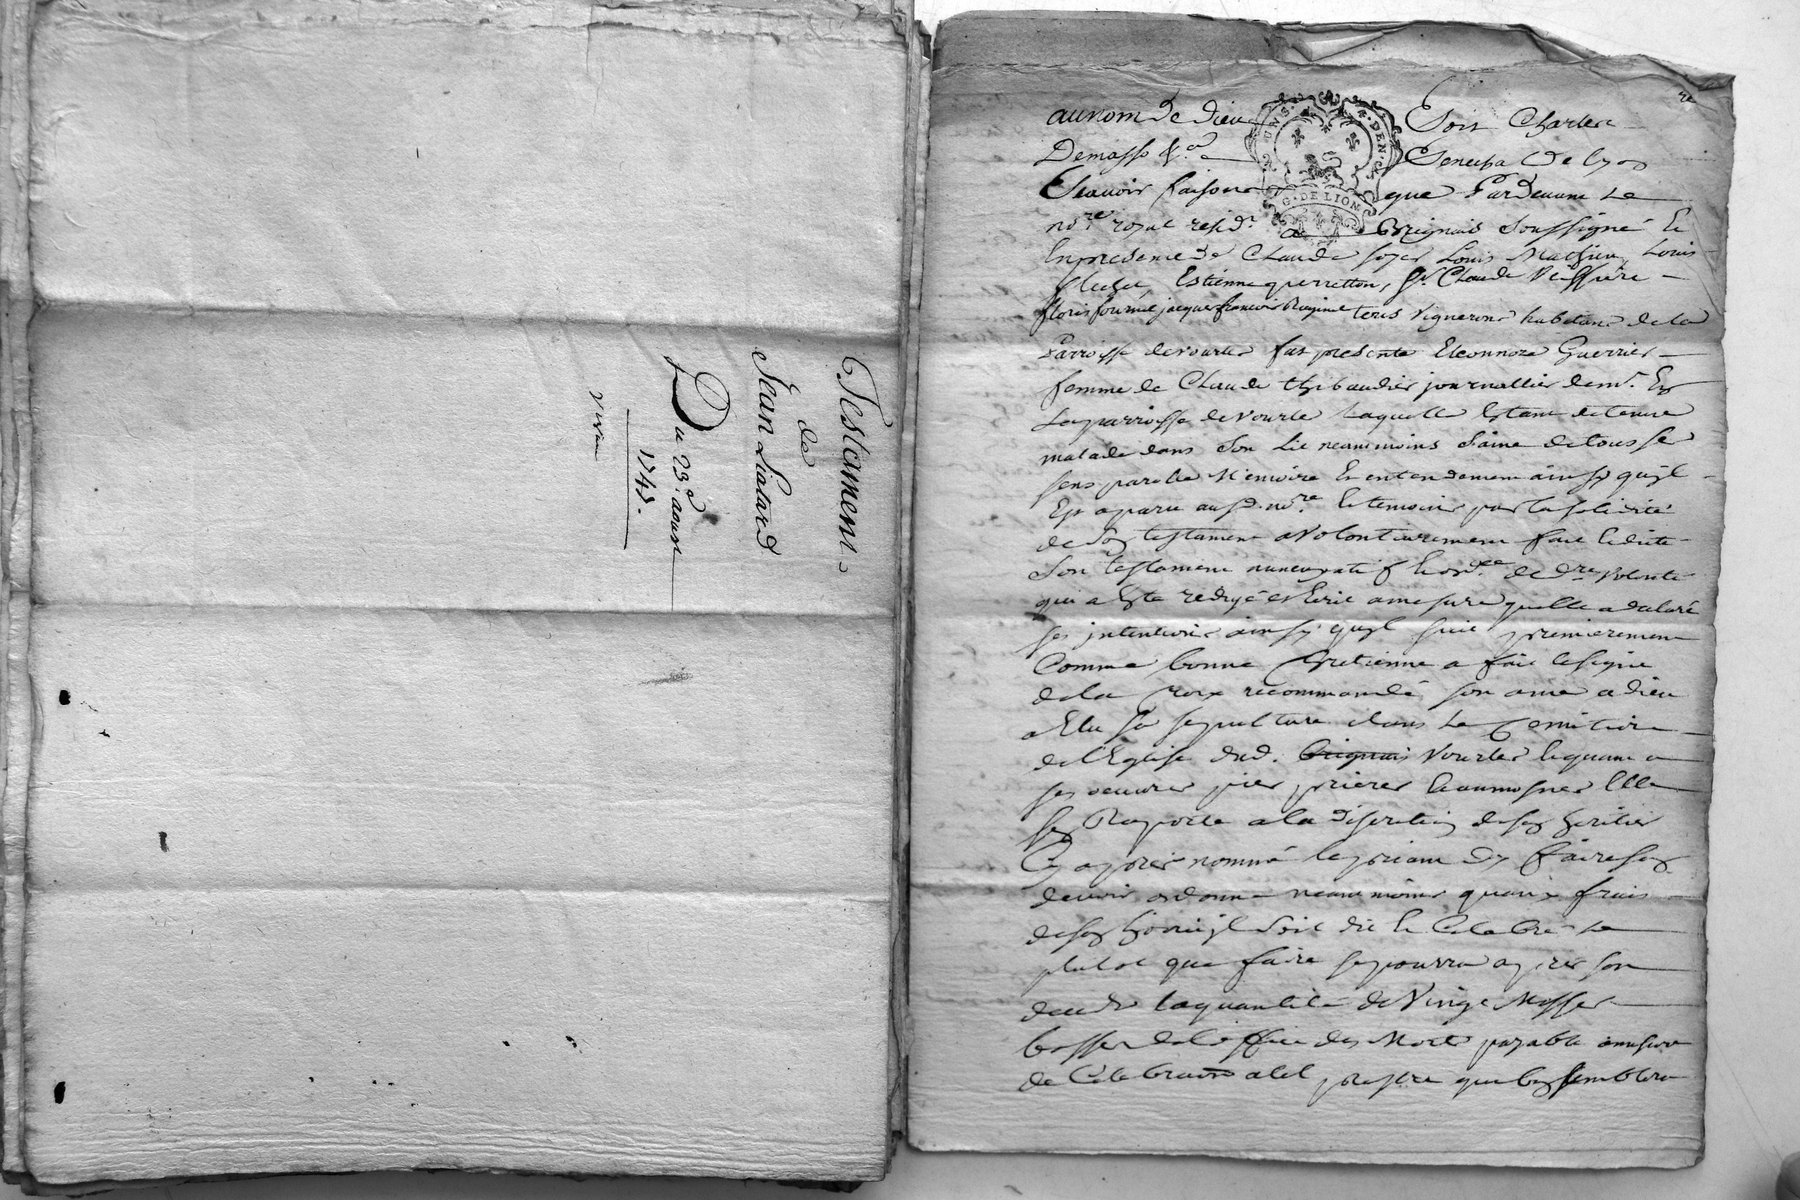 Testament
de
Jean Liatard
Du 23e. aoust
1743.
au nom de dieu Soit Charles
Demasso &.a Senechal de lyon
Scavoir faisons que Pardevant le
no.re royal resid.t a Brignais Soussigné Et
En presence de Claude Louis Mathieu, Louis
Estienne querretton, Sr. Claude
floris fournié jacque francois tous vignerons habitans de la
Parroisse de vourles fut presente Eleonnore Guerrier
femme de Claude thibaudier journallier dem.t En
La parroisse de Vourle laquelle Estant detenue
malade dans Son Lit neanmoins Saine de tous se
sens parolle Memoire Et entendement ainsy quil
Est aparu aud. no.re Et temoins par la solidité
de Son testament a volontairement fait Et dicté
Son testament nuncupatif Et ord.ce de d.re volonté
qui a Esté redigé et Ecrit a mesure quelle a declaré
ses jntentions ainsy quil suit premierement
Comme bonne Chretienne a fait le signe
de la Croix recommandé son ame a dieu
a Elu sa sepulture dans le Cemitiere
de l'Eglise dud. Brignais Vourles Et quant a
ses oeuvres pies prieres Et aumosnes Elle
s'En Raporte a la discretion de son heritier
Cy apres nommé le priant d'En faire son
devoir ordonne neanmoins quaux frais
de son hoirie jl Soit dit Et Celebré le
plutot que faire se pourra apres son
deceds la quantité de Vingt Messes
basses de l'office des Morts payable amesure
de Celebration a tel prestre que bon semblera